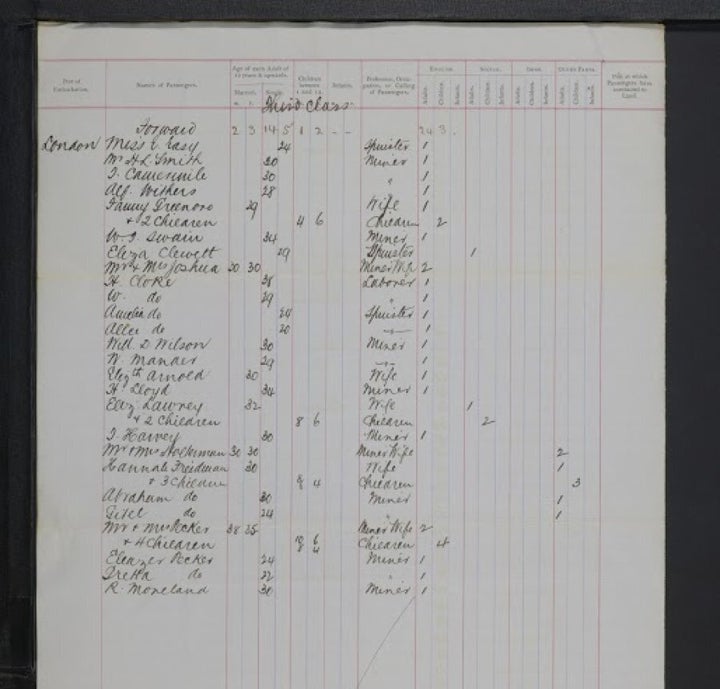 Port of Embarkation. Names of Passengers. Age of each Adult of 12 years & upwards. Children between 1 and 12. Infants. Profession, Occupation, or Calling of Passengers. English. Scotch. Irish. Other Parts. Port at which Passengers have contracted to Land.
Married. Single. Adults. Children. Infants. Adults. Children. Infants. Adults. Children. Infants. Adults. Children. Infants.
Third Class
Forward 2 3 14 5 1 2 - - 24 3
London Miss E Easy 24 Spinster 1
Mr H L Smith 20 Miner 1
30 " 1
Alf. Withers 28 1
Fanny 29 Wife 1
+ 2 Children 4 6 Children 2
W. J. Swain 34 Miner 1
Eliza Clewett 29 Spinster 1
Mr + Mrs Joshua 30 30 Miner Wife 2
H. Cloke 38 Laborer 1
W. do 29 " 1
Amelia do 24 Spinster 1
Allei do 20 1
Will D Wilson 30 Miner 1
W. Mander 29 1
Elizth Arnold 30 Wife 1
H Lloyd 34 Miner 1
Eliz Lawney 32 Wife 1
+ 2 Children 8 6 Children 2
J Harvey 30 Miner 1
Mr + Mrs 30 30 Miner Wife 2
Hannah Freidman 30 Wife 1
+ 3 Children 4 Children 3
Abraham do 30 Miner 1
do 24 " 1
Mr + Mrs Pecker 38 35 Miner Wife 2
+ 4 Children 6 Children 4
8 4
Eleazer Pecker 24 Miner 1
do 22 " 1
R. Moneland 30 Miner 1